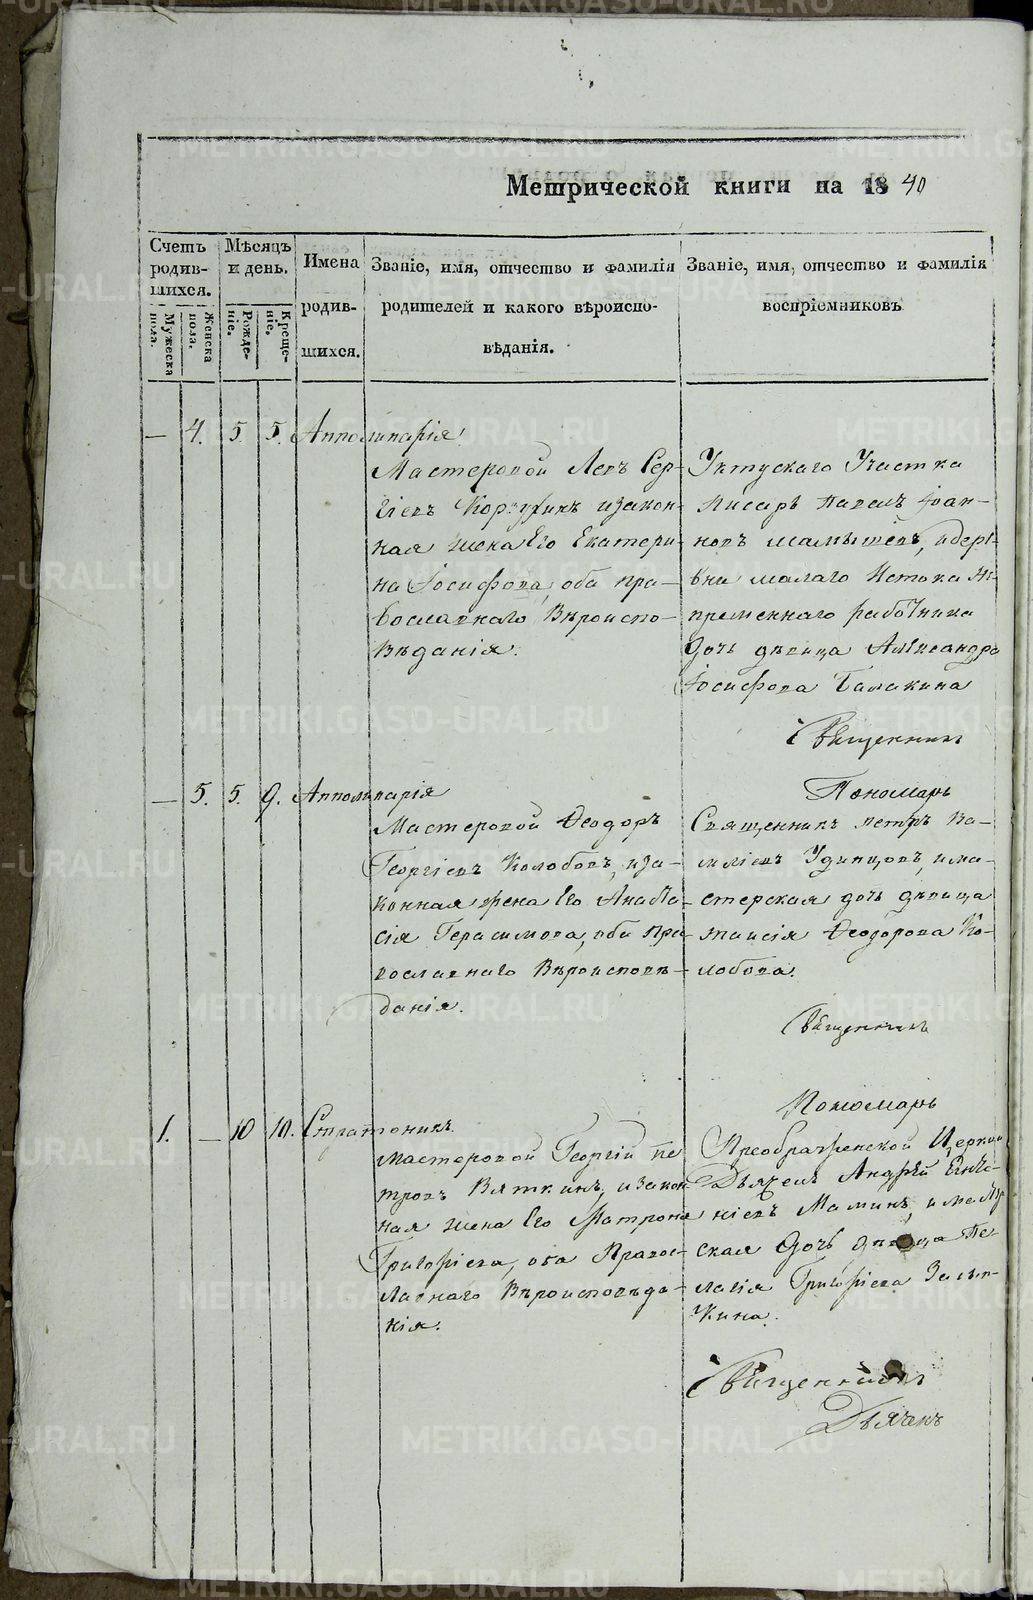 Метрической книги на 1840
Счетъ родившихся.
Мужеска пола.
Женска пола.
Мѣсяцъ и день.
Рожденіе.
Крещеніе.
Имена родившихся.
Званіе, имя, отчество и фамилія родителей и какого вѣроисповѣданія.
Званіе, имя, отчество и фамилія воспріемниковъ
— 4. 5. 5. Апполинарія
Мастеровой Левъ Сер-
гіевъ и закон-
ная жена Его Екатери-
на Іосифова, оба пра-
вославнаго Вѣроиспо-
вѣданія.
Уктускаго Участка
Писарь Павелъ Іоан-
новъ Мамышевъ, и дерѣ-
вни малаго Истока Не-
премѣннаго работника
дочь дѣвица Александра
Іосифова Балакина
Священникъ
Пономарь
— 5. 5. 9. Апполинарія
Мастеровой Ѳеодоръ
Георгіевъ Колобовъ, и за-
конная жена Его Анаста-
сія Герасимова, оба Пра-
вославнаго Вѣроисповѣ-
данія.
Священникъ Петръ Ва-
силіевъ Удинцовъ, и ма-
стерская дочь дѣвица
Ѳеодорова Ко-
лобова.
Священникъ
Пономарь
1. — 10 10. Стратоникъ
Мастеровой Георгій Пе
тровъ Вяткинъ, и закон
ная жена Его Матрона
Григорьева, оба Правос-
лавнаго Вѣроисповѣда-
нія.
Преображенской Церкви
Дьячекъ Андрей Евге-
ніевъ Маминъ, и мастер
ская дочь дѣвица Пе-
лагія Григорьева
кина.
Священникъ
Дьячекъ
METRIKI.GASO-URAL.RU